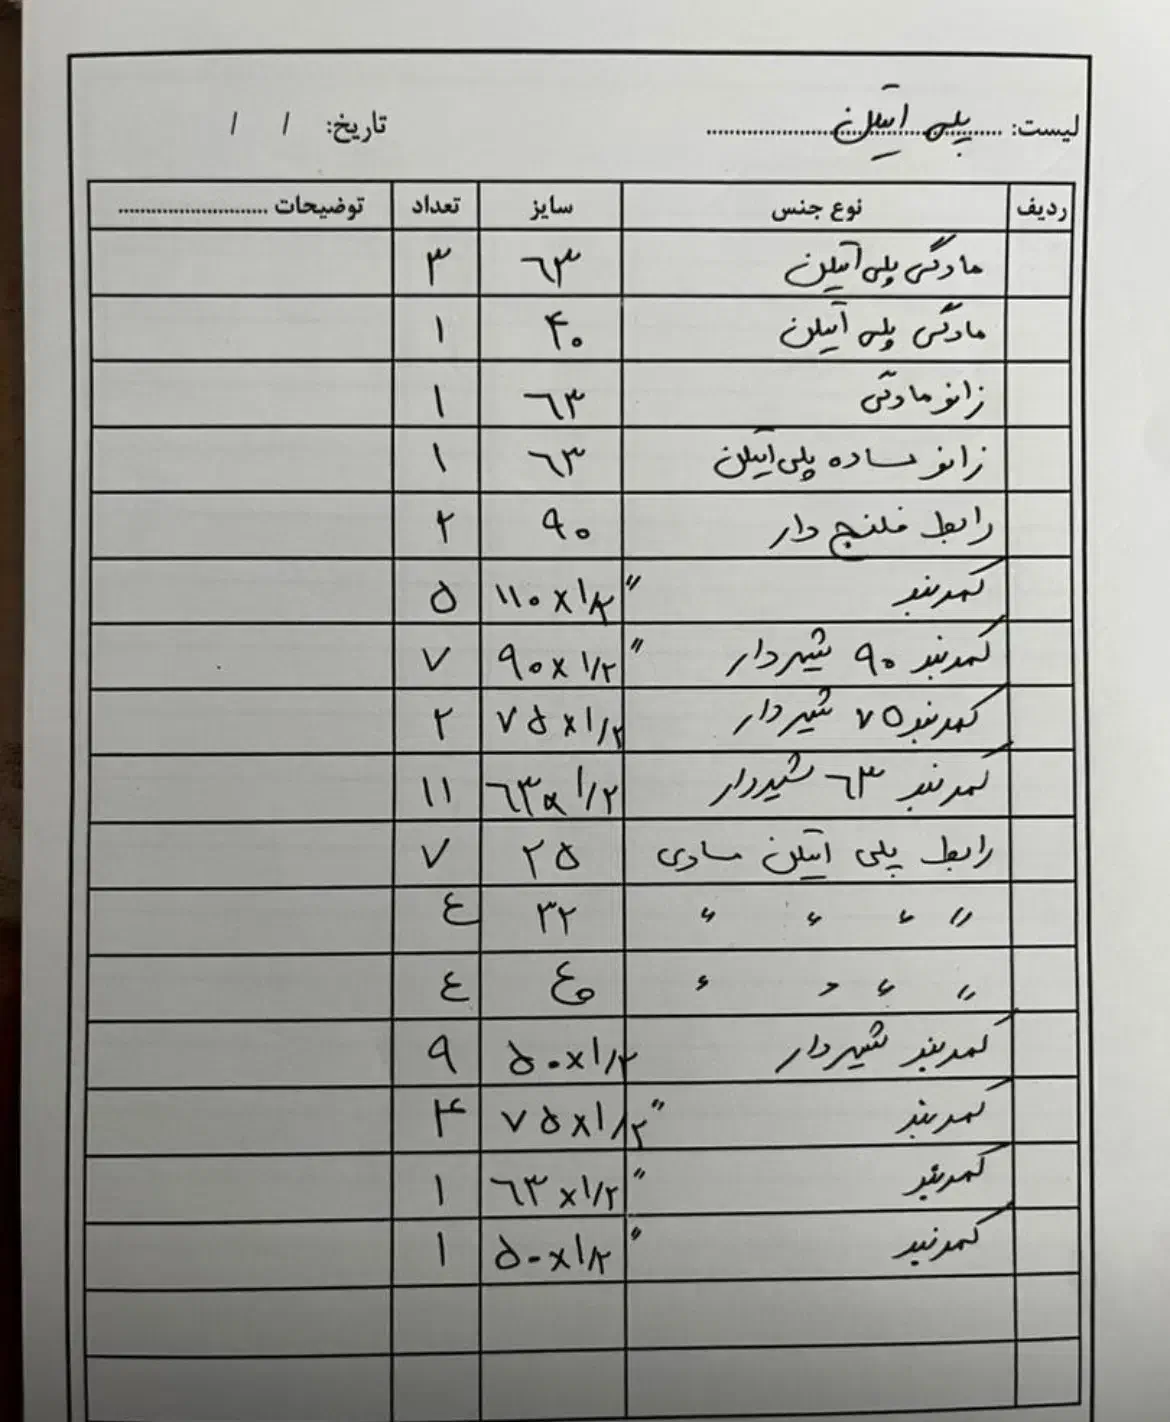 لیست: پلی اتیلن تاریخ: / /
ردیف نوع جنس سایز تعداد توضیحات
مادگی پلی اتیلن ٦٣ ٣
مادگی پلی اتیلن ۴۰ ۱
زانو مادگی ٦٣ ۱
زانو ساده پلی اتیلن ٦٣ ۱
رابط فلنج دار ۹۰ ۲
کمربند ۱۱۰ × ۱/۲ " ۵
کمربند ۹۰ شیردار ۹۰ × ۱/۲ " ۷
کمربند ۷۵ شیردار ۷۵ × ۱/۲ ۲
کمربند ٦٣ شیردار ٦٣ × ۱/۲ ۱۱
رابط پلی اتیلن مساوی ۲۵ ۷
" " " " ۳۲ ٤
" " " " ٤۰ ٤
کمربند شیردار ۵۰ × ۱/۲ ۹
کمربند ۷۵ × ۱/۲ " ۴
کمربند ٦٣ × ۱/۲ " ۱
کمربند ۵۰ × ۱/۲ " ۱